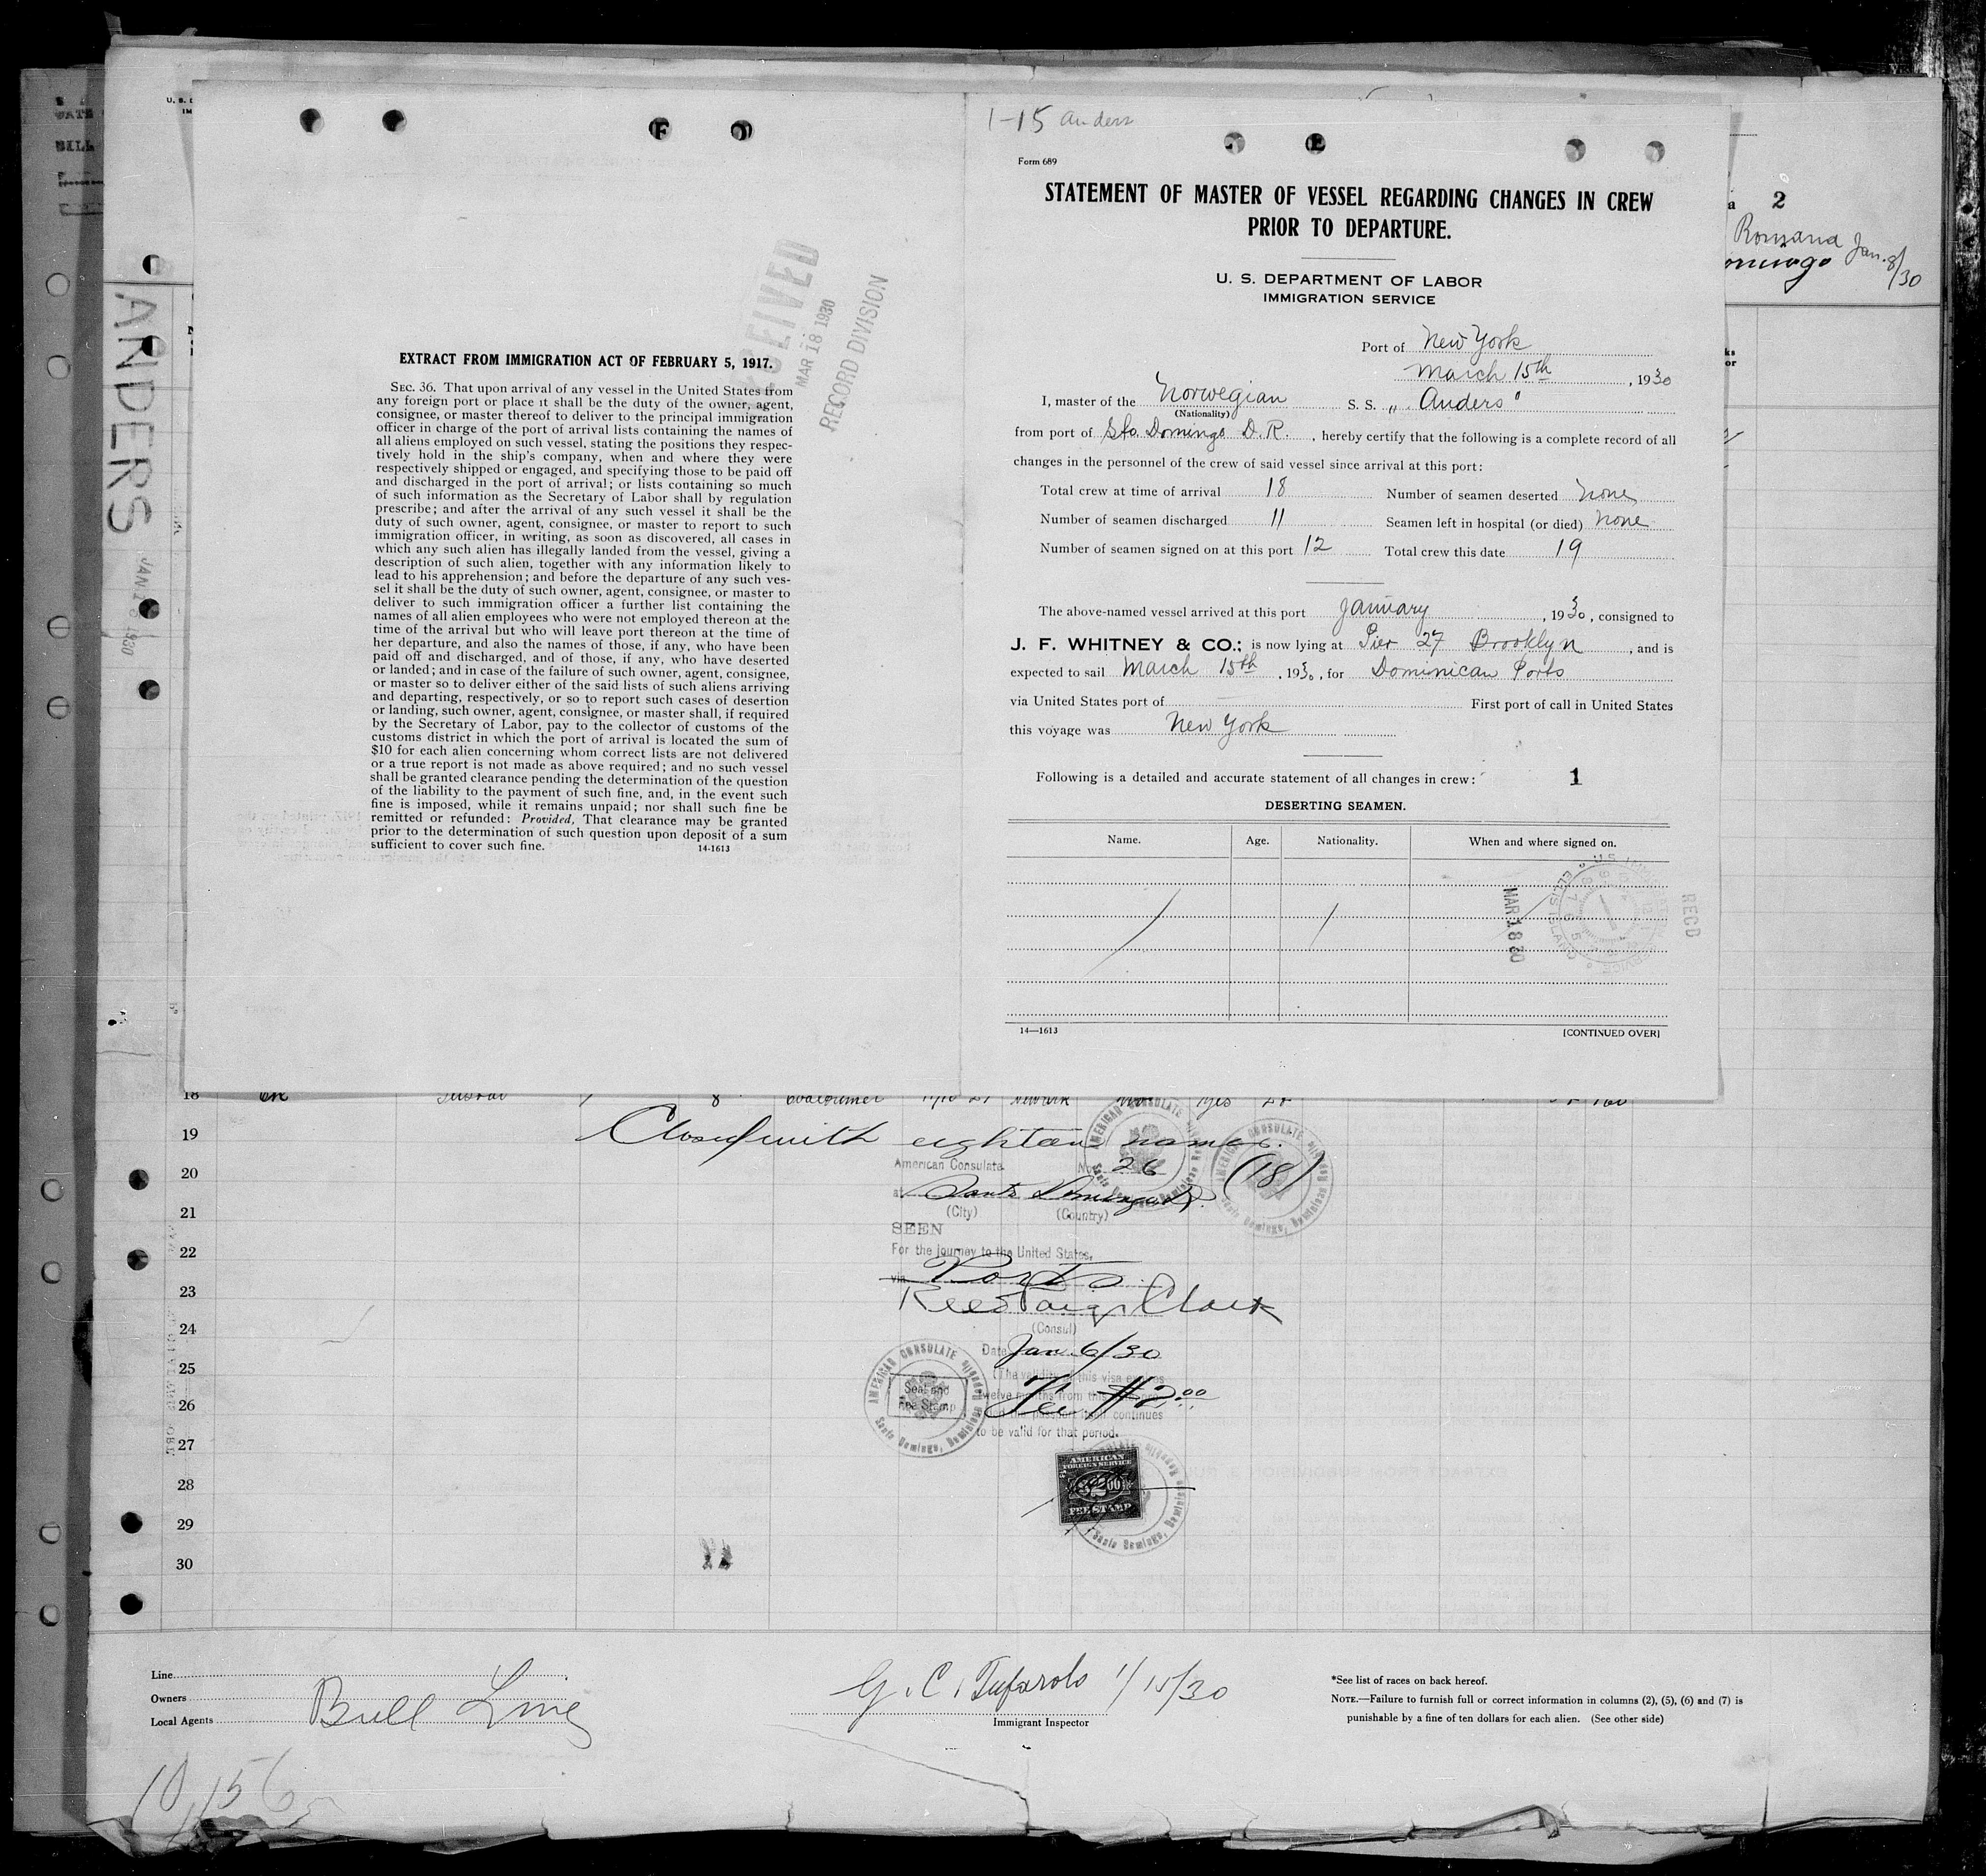 1-15 Anders
Form 689
STATEMENT OF MASTER OF VESSEL REGARDING CHANGES IN CREW
PRIOR TO DEPARTURE.
U. S. DEPARTMENT OF LABOR
IMMIGRATION SERVICE
Port of New York
March 15th, 1930
I, master of the Norwegian S. S. „ Anders "
(Nationality)
from port of Sto. Domingo D. R., hereby certify that the following is a complete record of all
changes in the personnel of the crew of said vessel since arrival at this port:
Total crew at time of arrival 18 Number of seamen deserted none
Number of seamen discharged 11 Seamen left in hospital (or died) none
Number of seamen signed on at this port 12 Total crew this date 19
The above-named vessel arrived at this port January, 1930, consigned to
J. F. WHITNEY & CO.; is now lying at Pier 27 Brooklyn, and is
expected to sail March 15th, 1930, for Dominican Ports
via United States port of First port of call in United States
this voyage was New York
Following is a detailed and accurate statement of all changes in crew: 1
DESERTING SEAMEN.
Name. Age. Nationality. When and where signed on.
MAR 18 30
RECD
14—1613 [CONTINUED OVER]
RECEIVED
MAR 18 1930
RECORD DIVISION
EXTRACT FROM IMMIGRATION ACT OF FEBRUARY 5, 1917.
SEC. 36. That upon arrival of any vessel in the United States from
any foreign port or place it shall be the duty of the owner, agent,
consignee, or master thereof to deliver to the principal immigration
officer in charge of the port of arrival lists containing the names of
all aliens employed on such vessel, stating the positions they respec-
tively hold in the ship's company, when and where they were
respectively shipped or engaged, and specifying those to be paid off
and discharged in the port of arrival; or lists containing so much
of such information as the Secretary of Labor shall by regulation
prescribe; and after the arrival of any such vessel it shall be the
duty of such owner, agent, consignee, or master to report to such
immigration officer, in writing, as soon as discovered, all cases in
which any such alien has illegally landed from the vessel, giving a
description of such alien, together with any information likely to
lead to his apprehension; and before the departure of any such ves-
sel it shall be the duty of such owner, agent, consignee, or master to
deliver to such immigration officer a further list containing the
names of all alien employees who were not employed thereon at the
time of the arrival but who will leave port thereon at the time of
her departure, and also the names of those, if any, who have been
paid off and discharged, and of those, if any, who have deserted
or landed; and in case of the failure of such owner, agent, consignee,
or master so to deliver either of the said lists of such aliens arriving
and departing, respectively, or so to report such cases of desertion
or landing, such owner, agent, consignee, or master shall, if required
by the Secretary of Labor, pay to the collector of customs of the
customs district in which the port of arrival is located the sum of
$10 for each alien concerning whom correct lists are not delivered
or a true report is not made as above required; and no such vessel
shall be granted clearance pending the determination of the question
of the liability to the payment of such fine, and, in the event such
fine is imposed, while it remains unpaid; nor shall such fine be
remitted or refunded: Provided, That clearance may be granted
prior to the determination of such question upon deposit of a sum
sufficient to cover such fine.
14-1613
2
Romana Jan. 8/30
ANDERS
18
19 Closed with eighteen names.
20 American Consulate No. 26 (18)
at Santo Domingo D.R.
21 (City) (Country)
SEEN
22 For the journey to the United States,
via Ports
23 Reed Paige Clark
24 (Consul)
Date Jan. 6/30
25 (The validity of this visa expires
twelve months from this
Fee $2.00
26 continues
to be valid for that period.
27
28
29
30
AMERICAN CONSULATE
Santo Domingo, Dominican Republic
Seal and
Fee Stamp
AMERICAN
FOREIGN SERVICE
$2.00
FEE STAMP
Line
Owners
Local Agents Bull Line
G. C. Tufarolo 1/15/30
Immigrant Inspector
*See list of races on back hereof.
NOTE.—Failure to furnish full or correct information in columns (2), (5), (6) and (7) is
punishable by a fine of ten dollars for each alien. (See other side)